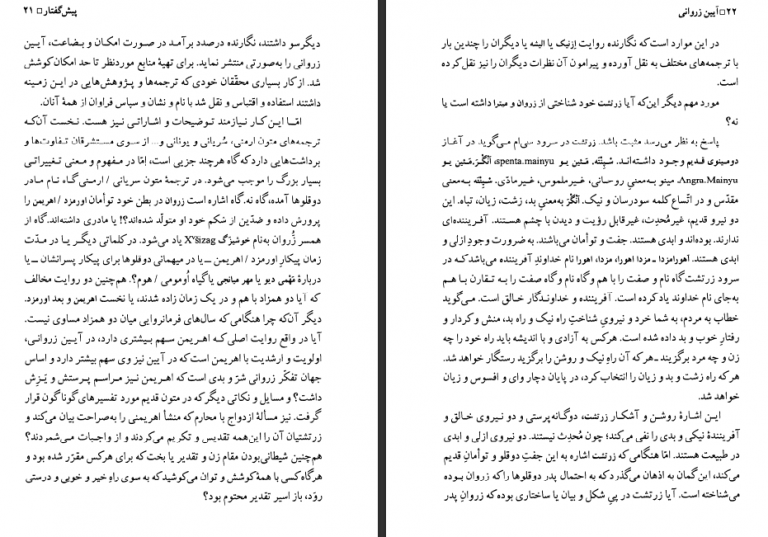 پیش‌گفتار □ ۲۱
دیگرسو داشتند، نگارنده درصدد برآمد در صورت امکان و بضاعت، آیین
زروانی را به‌صورتی منتشر نماید. برای تهیهٔ منابع موردنظر تا حد امکان کوشش
شد. از کار بسیاری محقّقان خودی که ترجمه‌ها و پژوهش‌هایی در این زمینه
داشتند استفاده و اقتباس و نقل شد با نام و نشان و سپاس فراوان از همهٔ آنان.
امّا این کار نیازمند توضیحات و اشاراتی نیز هست. نخست آن‌که
ترجمه‌های متون ارمنی، سُریانی و یونانی و... از سوی مستشرقان تفاوت‌ها و
برداشت‌هایی دارد که گاه هرچند جزیی است، امّا در مفهوم و معنی تغییراتی
بسیار بزرگ را موجب می‌شود. در ترجمهٔ متون سریانی / ارمنی گاه نام مادر
دوقلوها آمده، گاه نه. گاه اشاره است زروان در بطن خود توأمان اورمزد / اهریمن را
پرورش داده و ضدّین از شکم خود او متولّد شده‌اند؟! یا مادری داشته‌اند. گاه از
همسر زُروان به‌نام خوشیزگ Xʷšizag یاد می‌شود. در کلماتی دیگر یا در مدّت
زمان پیکار اورمزد / اهریمن ـ یا در میهمانی دوقلوها برای پیکار پسرانشان ـ یا
دربارهٔ مَهْمی دیو یا مهر میانجی یا گیاه اُومومی / هوم؟. هم‌چنین دو روایت مخالف
که آیا دو همزاد با هم و در یک زمان زاده شدند، یا نخست اهریمن و بعد اورمزد.
دیگر آن‌که چرا هنگامی که سال‌های فرمانروایی میان دو همزاد مساوی نیست.
آیا در واقع روایت اصلی که اهریمن سهم بیشتری دارد، در آیین زروانی،
اولویت و ارشدیت با اهریمن است که در آیین نیز وی سهم بیشتر دارد و اساس
جهان تفکّر زروانی شرّ و بدی است که اهریمن نیز مراسم پرستش و یَزِش
داشت؟ و مسایل و نکاتی دیگر که در متون قدیم مورد تفسیرهای گوناگون قرار
گرفت. نیز مسألهٔ ازدواج با محارم که منشأ اهریمنی را به‌صراحت بیان می‌کند و
زرتشتیان آن را این‌همه تقدیس و تکریم می‌کردند و از واجبات می‌شمردند؟
هم‌چنین شیطانی‌بودن مقام زن و تقدیر یا بخت که برای هرکس مقرّر شده بود و
هرگاه کسی با همهٔ کوشش و توان می‌کوشید که به سوی راهِ خیر و خوبی و درستی
رؤد، باز اسیر تقدیر محتوم بود؟
۲۲ □ آیین زروانی
در این موارد است که نگارنده روایت اِزنیک یا الیشه یا دیگران را چندین بار
با ترجمه‌های مختلف به نقل آورده و پیرامون آن نظرات دیگران را نیز نقل کرده
است.
مورد مهم دیگر این‌که آیا زرتشت خود شناختی از زروان و میترا داشته است یا
نه؟
پاسخ به نظر می‌رسد مثبت باشد. زرتشت در سرود سی‌ام می‌گوید در آغاز
دومینوی قدیم وجود داشته‌اند. سْپِنْتَه.مَینیو spenta.mainyu، اَنْگْرَ.مَینیو
Angra.Mainyu. مینو به‌معنیِ روحانی، غیرملموس، غیرمادّی. سْپِنْتَه به‌معنی
مقدّس و در اتّساع کلمه سودرسان و نیک. اَنْگْرَ به‌معنیِ بد، زشت، زیان، تباه. این
دو نیرو قدیم، غیرمُحدِث، غیرقابل رؤیت و دیدن با چشم هستند. آفریننده‌ای
ندارند. بوده‌اند و ابدی هستند. جفت و توأمان می‌باشند. به ضرورت وجودِ ازلی و
ابدی هستند. اهورامزدا ـ مزدا اهورا، مزدا، اهورا نام خداوندِ آفریننده می‌باشد که در
سرود زرتشت گاه نام و صفت را با هم و گاه نام و گاه صفت را به تقارن با هم
به‌جای نام خداوند یاد کرده است. آفریننده و خداوندگار خالق است. می‌گوید
خطاب به مردم، به شما خرد و نیرویِ شناختِ راهِ نیک و راه بد، منش و کردار و
رفتار خوب و بد داده شده است. هرکس به آزادی و با اندیشه باید راه خود را چه
زن و چه مرد برگزیند ـ هرکه آن راهِ نیک و روشن را برگزید رستگار خواهد شد.
هرکه راه زشت و بد و زیان را انتخاب کرد، در پایان دچار وای و افسوس و زیان
خواهد شد.
این اشارهٔ روشن و آشکار زرتشت، دوگانه‌پرستی و دو نیروی خالق و
آفرینندهٔ نیکی و بدی را نفی می‌کند؛ چون مُحدِث نیستند. دو نیروی ازلی و ابدی
در طبیعت هستند. امّا هنگامی که زرتشت اشاره به این جفتِ دوقلو و توأمان قدیم
می‌کند، این گمان به اذهان می‌گذرد که به احتمال پدر دوقلوها را که زروان بوده
می‌شناخته است. آیا زرتشت در پیِ شکل و بیان یا ساختاری بوده که زروانِ پدر